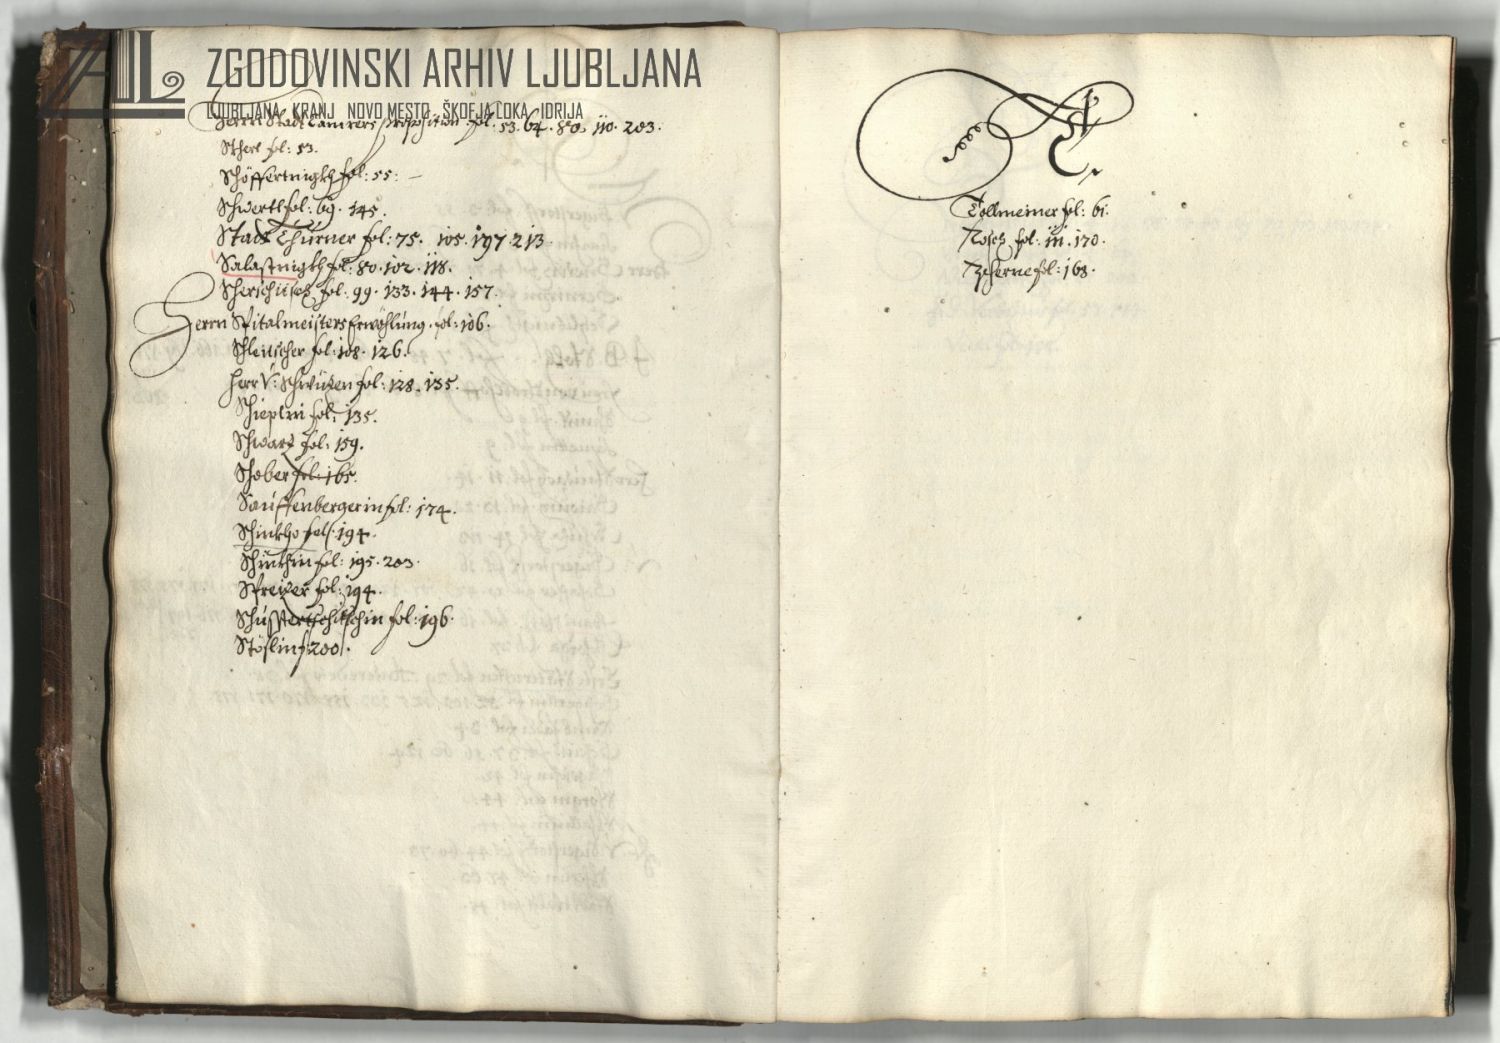 ZGODOVINSKI ARHIV LJUBLJANA
LJUBLJANA KRANJ NOVO MESTO ŠKOFJA LOKA IDRIJA
Herrn Stadt Camrers proposition fol: 53. 64. 80. 110. 203.
Stherl fol: 53.
Schöffertnigkh fol: 55:
Schwertl fol: 69. 145.
Stadt Thürner fol: 75. 105. 197. 213.
Salastnigkh fol: 80. 102. 118.
Scherschüsch fol: 99. 133. 144. 157.
Herrn Spitalmeisters Erwöhlung. fol: 106.
Schleitscher fol: 108. 126.
Herr V: Schwitzen fol: 128. 135.
Schieplin fol: 135.
Schwarz fol: 159.
Schober fol: 165.
Sauffenbergerin fol: 174.
Schinkho fol. 194.
Schinkhin fol: 195. 203.
Spreizer fol: 194.
fol: 196.
Stöslin f: 200.
T.
Tollmeiner fol: 61.
fol: 111. 170.
Tscherne fol: 163.